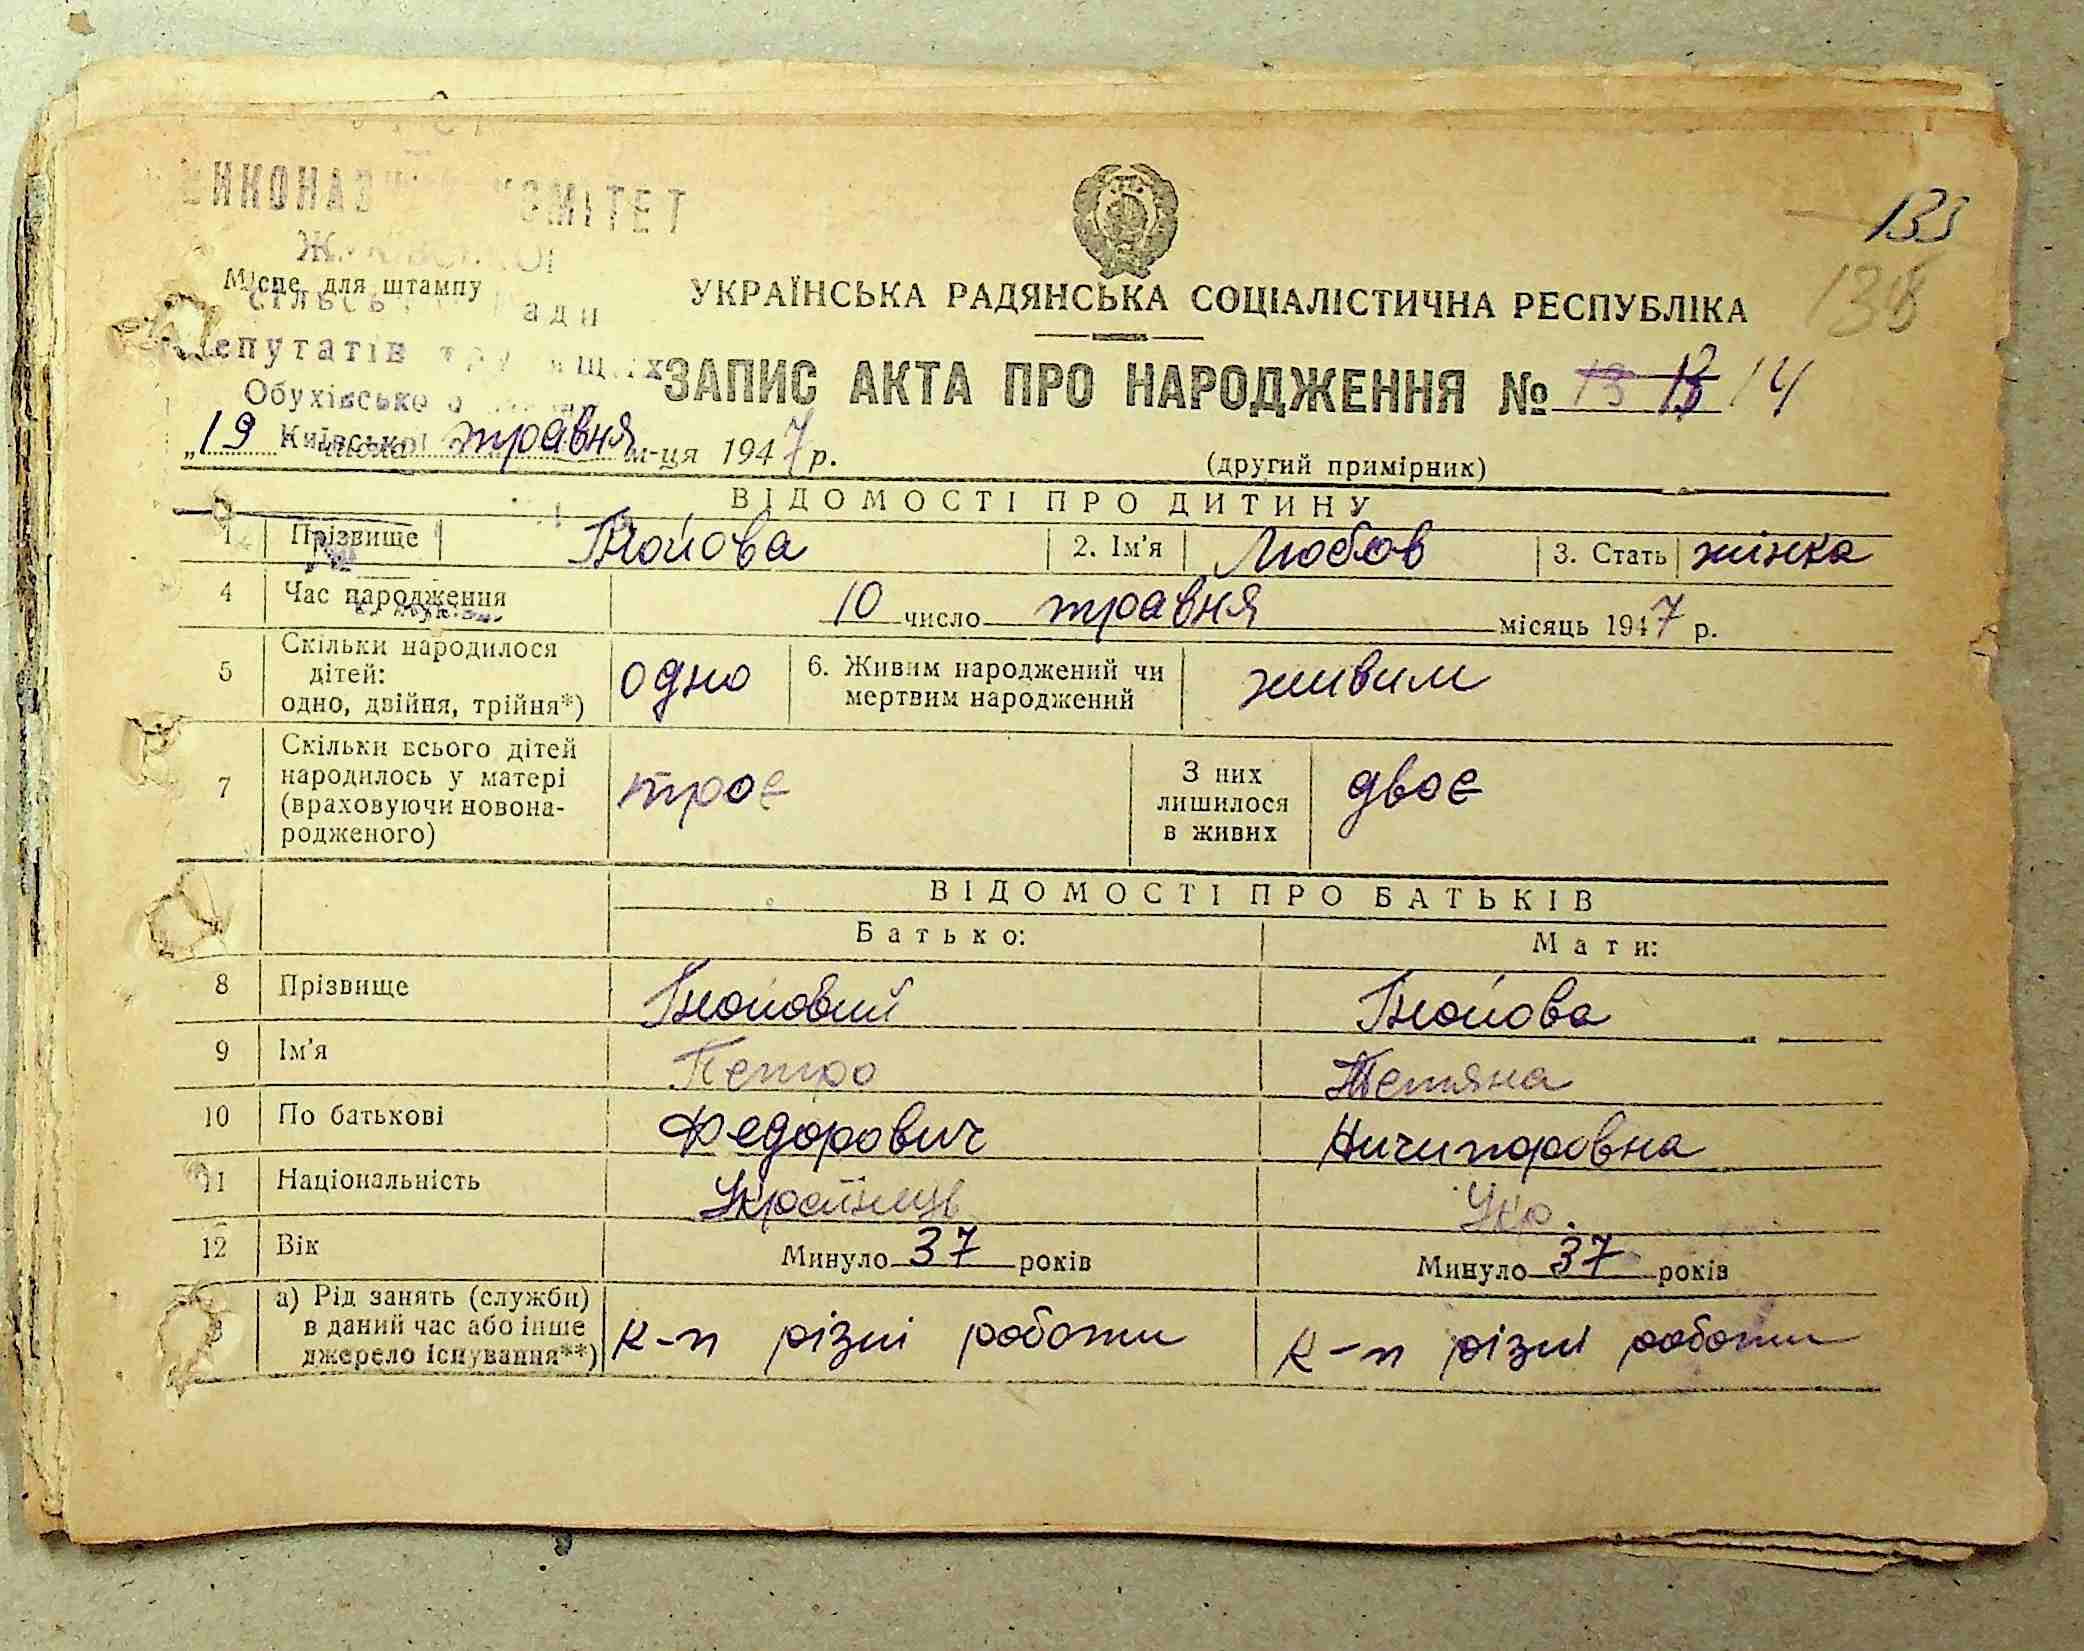 КОМІТЕТ
133
Місце для штампу
УКРАЇНСЬКА РАДЯНСЬКА СОЦІАЛІСТИЧНА РЕСПУБЛІКА
депутатів
ЗАПИС АКТА ПРО НАРОДЖЕННЯ № 13 13 14
„19 травня м-ця 1947 р.
(другий примірник)
ВІДОМОСТІ ПРО ДИТИНУ
1 Прізвище 2. Ім'я Любов 3. Стать жінка
4 Час народження 10 число травня місяць 1947 р.
5 Скільки народилося дітей: одно, двійня, трійня*) одно 6. Живим народжений чи мертвим народжений живим
7 Скільки всього дітей народилось у матері (враховуючи новонародженого) троє З них лишилося в живих двоє
ВІДОМОСТІ ПРО БАТЬКІВ
Батько: Мати:
8 Прізвище
9 Ім'я Петро Тетяна
10 По батькові Федорович Ничипоровна
11 Національність Українець Укр.
12 Вік Минуло 37 років Минуло 37 років
а) Рід занять (служби) в даний час або інше джерело існування**) к-п різні роботи к-п різні роботи